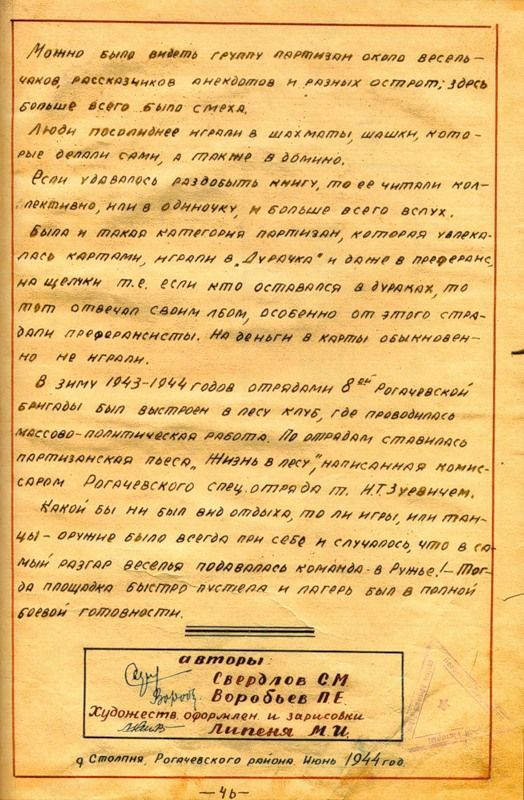 Можно было видеть группу партизан около весель-
чаков, рассказчиков анекдотов и разных острот; здесь
больше всего было смеха.
Люди посолиднее играли в шахматы, шашки, кото-
рые делали сами, а также в домино.
Если удавалось раздобыть книгу, то ее читали кол-
лективно, или в одиночку, и больше всего вслух.
Была и такая категория партизан, которая увлека-
лась картами, играли в „Дурачка" и даже в преферанс,
на щелчки т.е. если кто оставался в дураках, то
тот отвечал своим лбом, особенно от этого стра-
дали преферансисты. На деньги в карты обыкновен-
но не играли.
В зиму 1943-1944 годов отрядами 8ой Рогачевской
бригады был выстроен в лесу клуб, где проводилась
массово-политическая работа. По отрядам ставилась
партизанская пьеса „Жизнь в лесу", написанная комис-
саром Рогачевского спец.отряда т. И.Т.Зуевичем.
Какой бы ни был вид отдыха, то ли игры, или тан-
цы - оружие было всегда при себе и случалось, что в са-
мый разгар веселья подавалась команда - в Ружье! - Тог-
да площадка быстро пустела и лагерь был в полной
боевой готовности.
авторы:
Свердлов С.М.
Воробьев П.Е.
Художеств. оформлен. и зарисовки
Липеня М.И.
д Столпня, Рогачевского района. Июнь 1944 год.
-46-